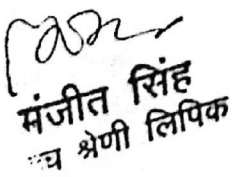 मंजीत सिंह
च श्रेणी लिपिक